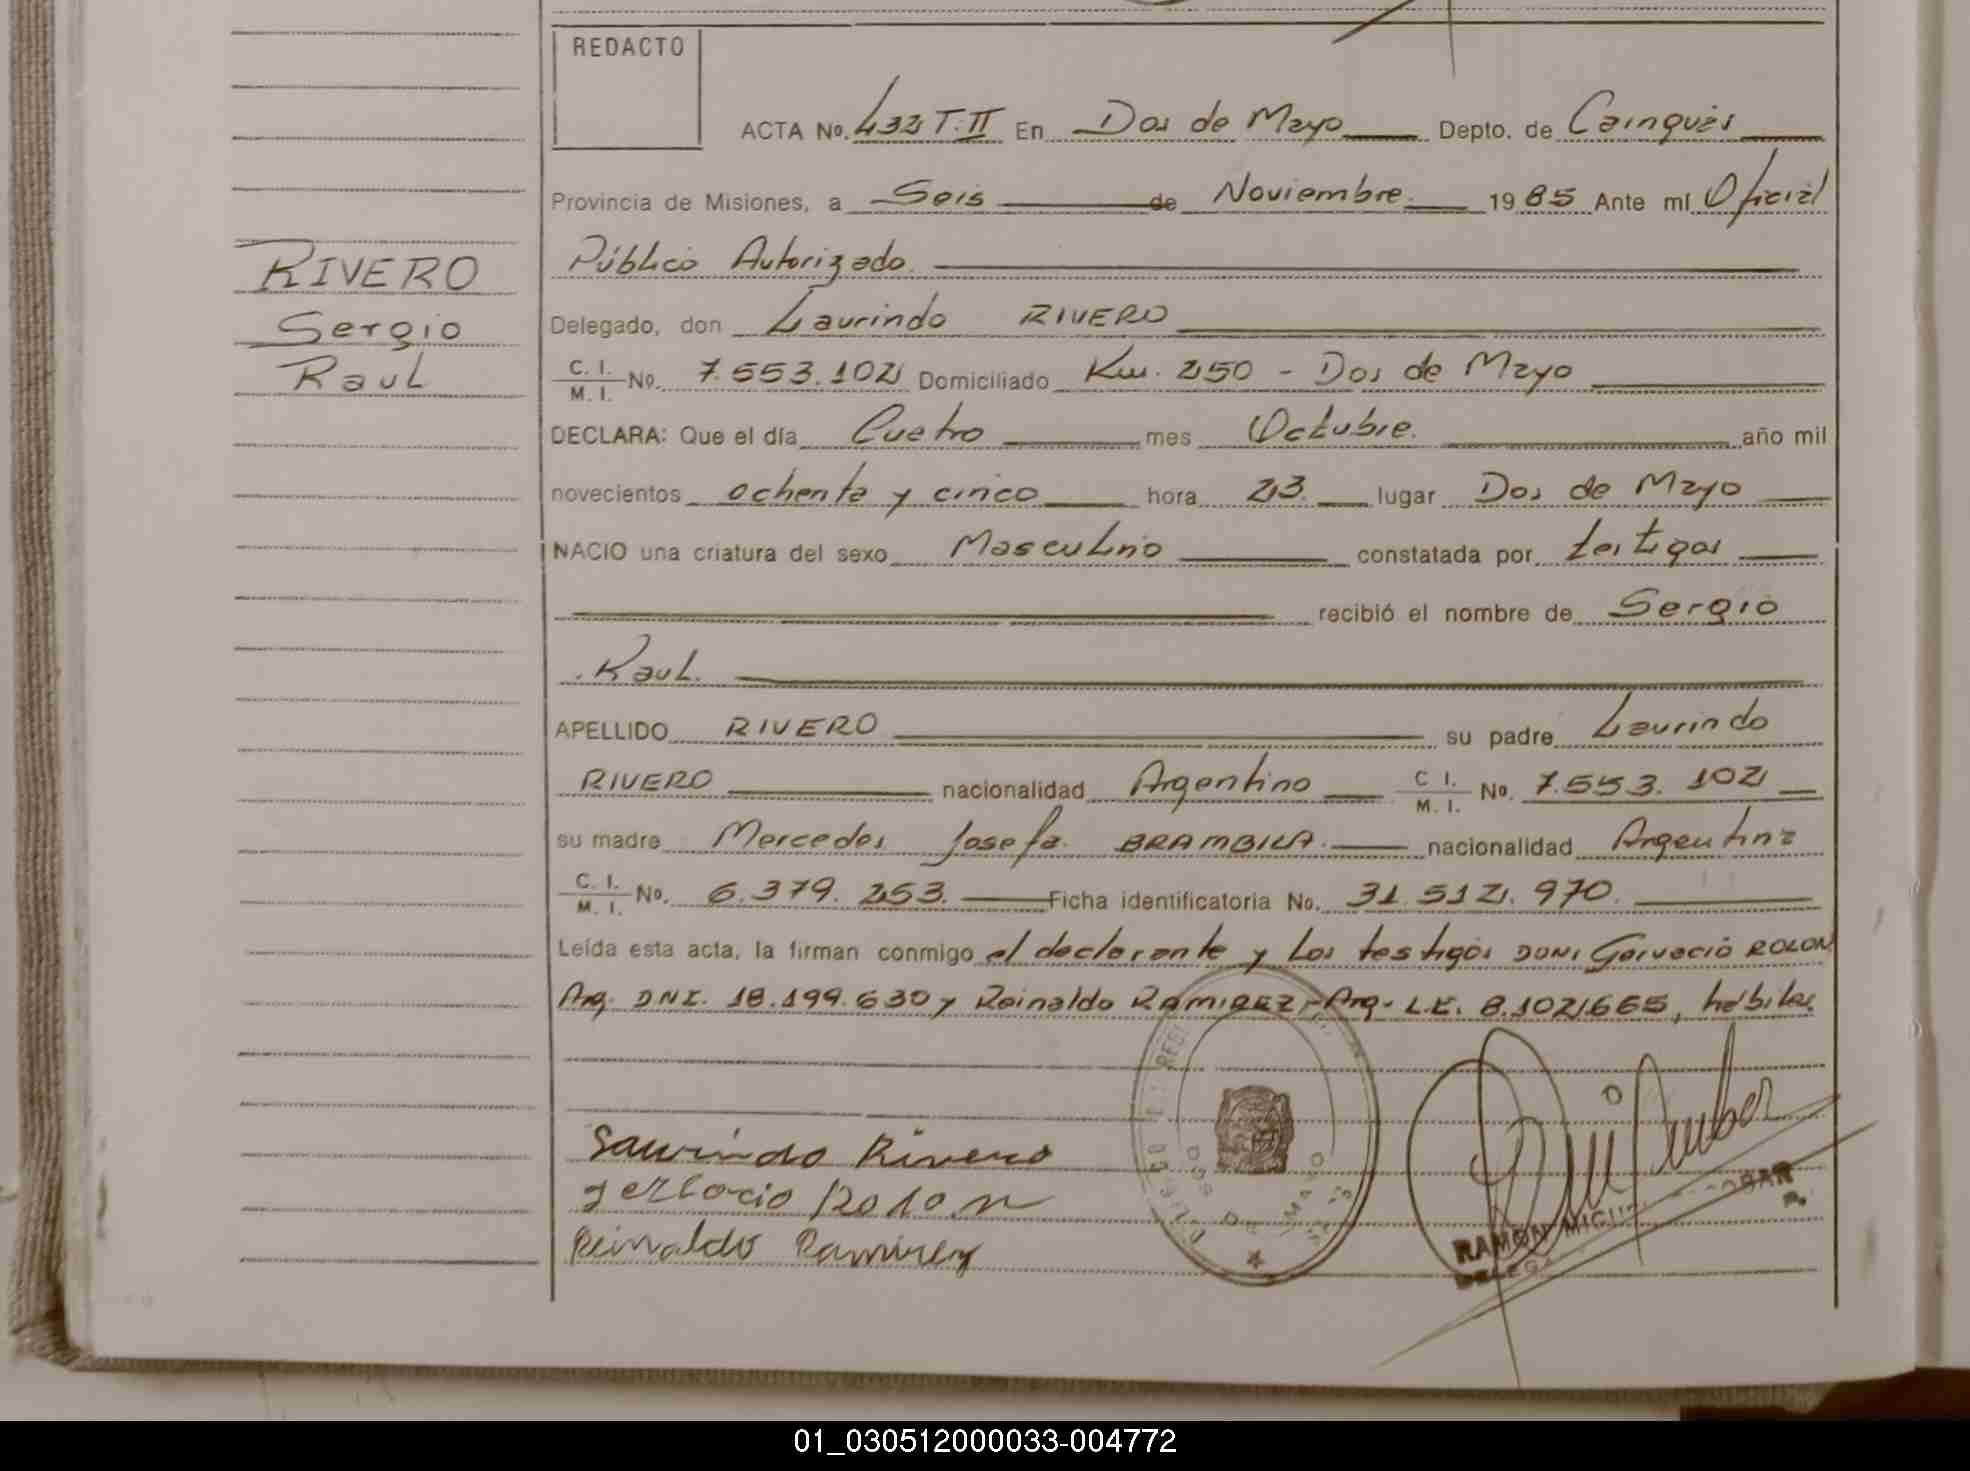 REDACTO
ACTA No. 432 T: II En Dos de Mayo Depto. de Cainguás
Provincia de Misiones, a Seis de Noviembre 1985 Ante mí Oficial
Público Autorizado.
Delegado, don Laurindo RIVERO
C. I. / M. I. No. 7.553.102 Domiciliado Km. 250 - Dos de Mayo
DECLARA: Que el día Cuatro mes Octubre. año mil
novecientos ochenta y cinco hora 23. lugar Dos de Mayo
NACIO una criatura del sexo Masculino constatada por testigos
recibió el nombre de Sergio
Raul.
APELLIDO RIVERO su padre Laurindo
RIVERO nacionalidad Argentino C I. / M. I. No. 7.553.102
su madre Mercedes Josefa BRAMBILA. nacionalidad Argentina
C. I. / M. I. No. 6.379.253. Ficha identificatoria No. 31.512.970.
Leída esta acta, la firman conmigo el declarante y los testigos DON: Gervacio ROLON
Arg. DNI. 18.199.630 y Reinaldo RAMIREZ, Arg. L.E. 8.102.665, hábiles
RIVERO
Sergio
Raul
Laurindo Rivero
Gerbacio Rolon
Reinaldo Ramirez
DOS DE MAYO
RAMON MIGUEL
01_030512000033-004772